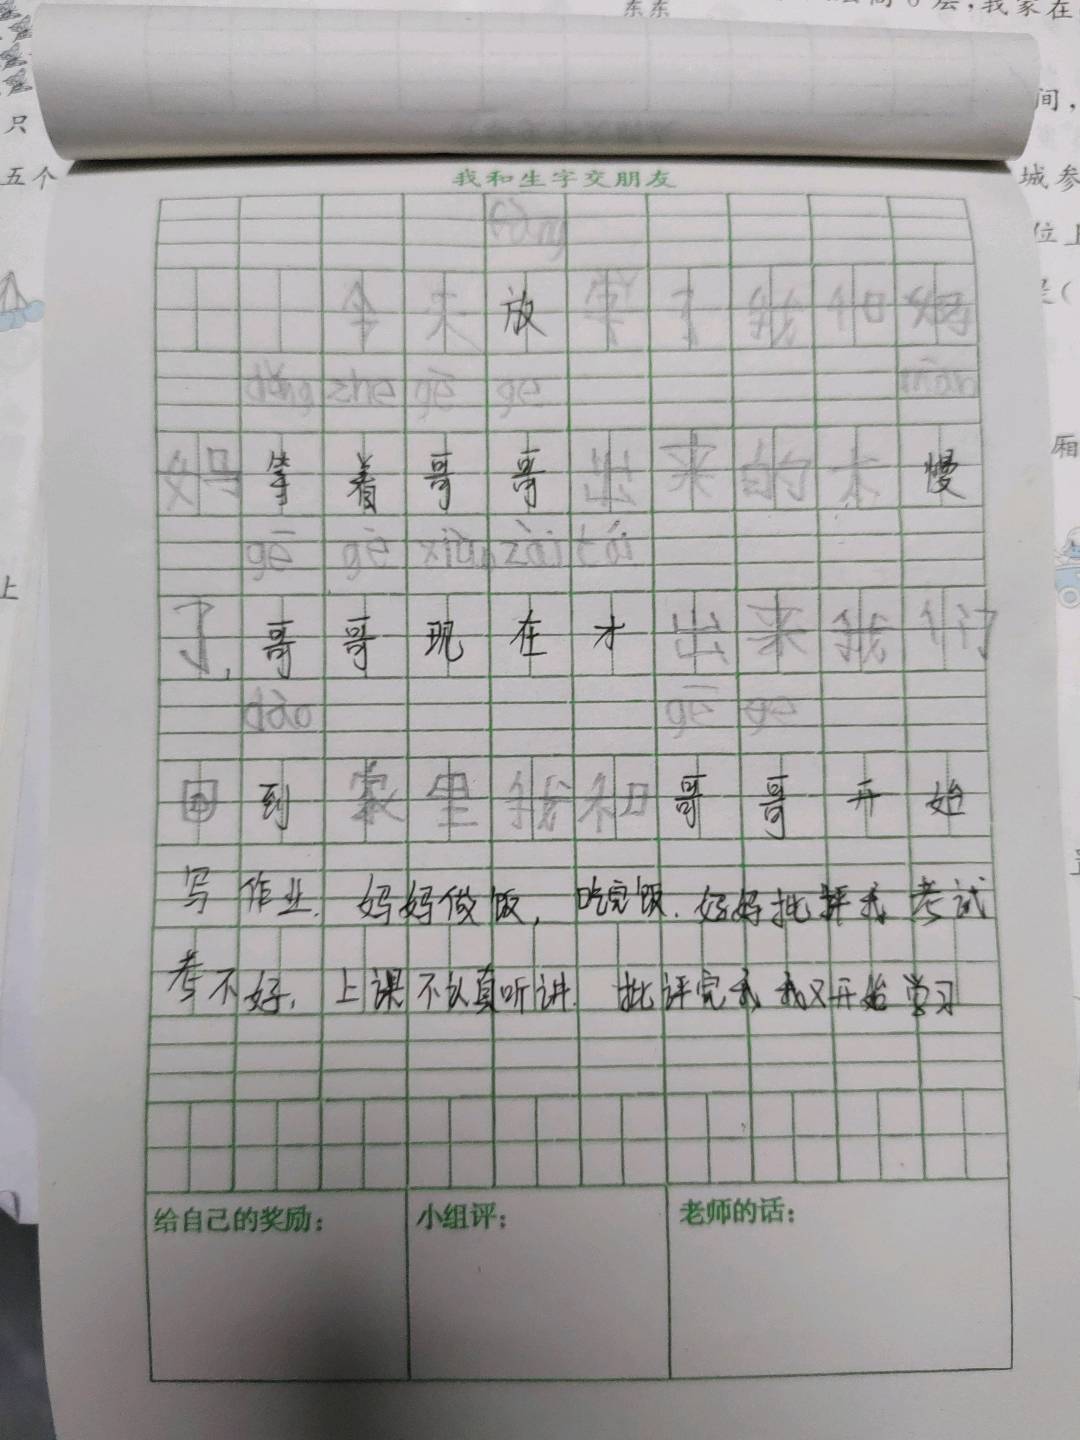 东东
层，我家在
只
间，
五个
城参
我和生字交朋友
fàng
位上
今天放学了我和妈
děng zhe gē ge màn
厢
妈等着哥哥出来的太慢
gē gē xiàn zài cái
上
了，哥哥现在才出来我们
dào gē ge
回到家里我和哥哥开始
写作业，妈妈做饭，吃完饭，妈妈批评我考试
考不好，上课不认真听讲．批评完我我又开始学习
给自己的奖励：
小组评：
老师的话：